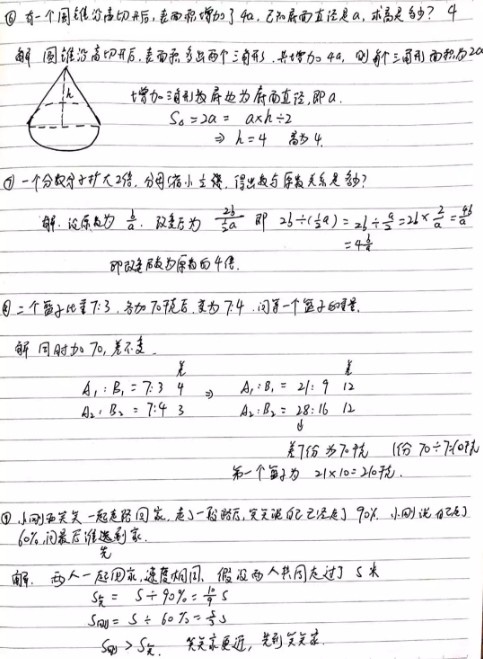 ⑥ 有一个圆锥沿高切开后,表面积增加了4a,已知底面直径是a,求高是多少? 4
解 圆锥沿高切开后,表面积多出两个三角形,共增加4a,则每个三角形面积为2a
h
增加三角形数底边为底面直径,即a.
S△ = 2a = a×h÷2
⇒ h=4 高为4.
⑦ 一个分数分子扩大2倍,分母缩小 倍,得出数与原数关系是多少?
解.设原数为 b/a . 改变后为 2b/½a 即 2b÷(½a) = 2b÷a/2 = 2b×2/a = 4b/a
= 4 b/a
即改变后数为原数的4倍.
⑧ 二个篮子比重7:3.各加70千克后,变为7:4.问第一个篮子的重量.
解 同时加70,差不变.
差 差
A₁:B₁ = 7:3 4 ⇒ A₁:B₁ = 21:9 12
A₂:B₂ = 7:4 3 A₂:B₂ = 28:16 12
差7份为70千克 1份70÷7=10千克
第一个篮子为 21×10=210千克.
⑨ 小刚和笑笑一起走路回家,走了一段路后,笑笑说自己已经走了90%.小刚说自己走了
60%.问最后谁 到家.
先
解. 两人一起回家,速度相同.假设两人共同走过了S米
S笑 = S÷90% = 10/9 S
S刚 = S÷60% = 5/3 S
S刚 > S笑. 笑笑家更近,先到笑笑家.